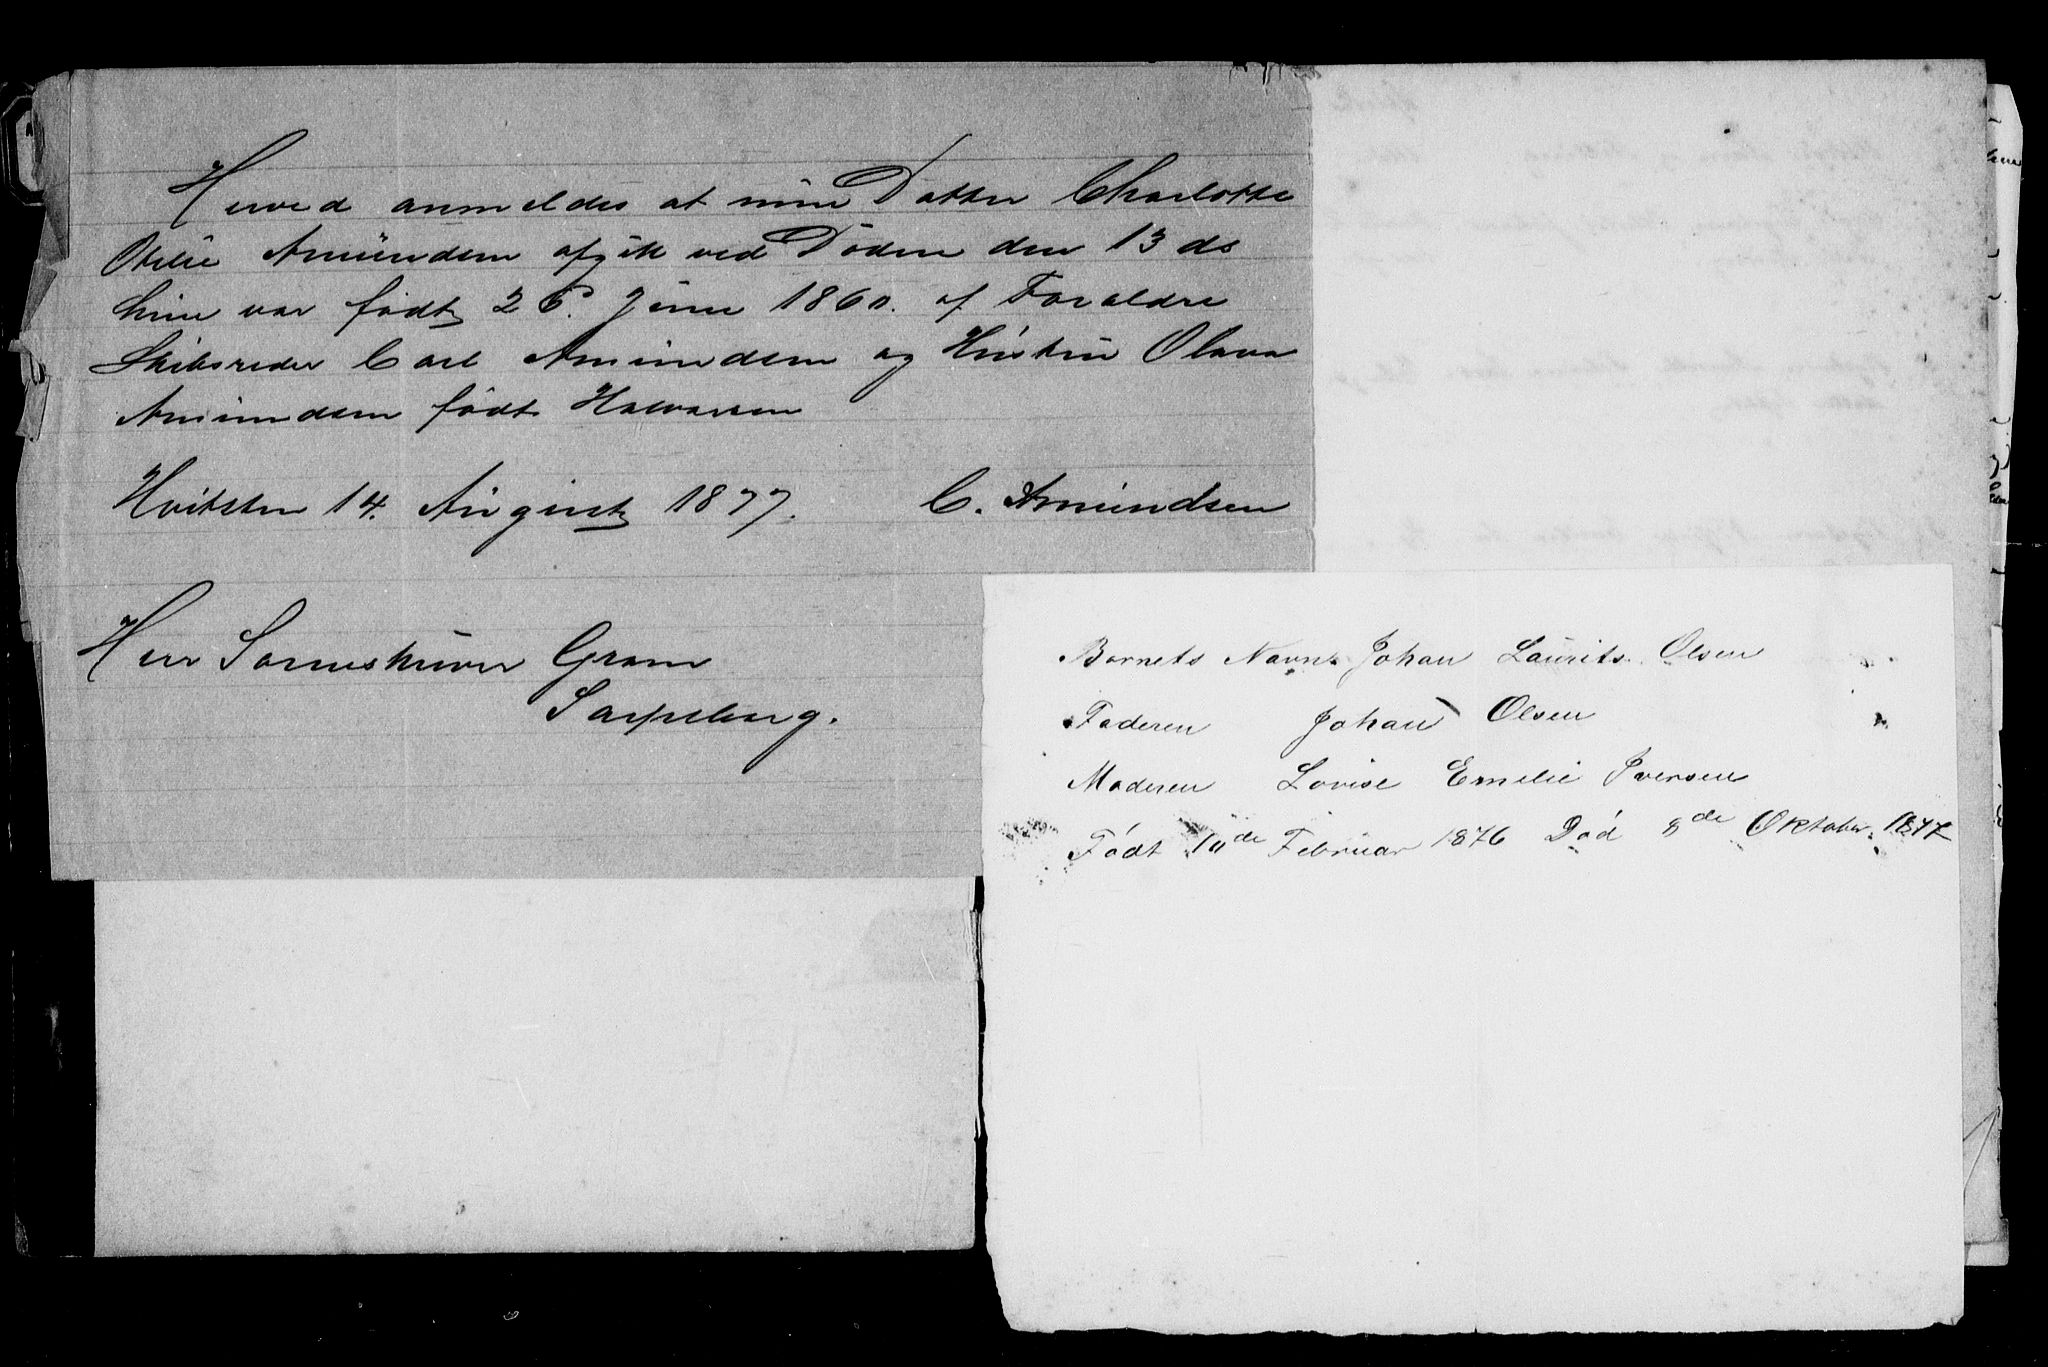 Herved anmeldes at min Datter Charlotte
Otilie Amundsen afgik ved Døden den 13 ds
hun var født 26. Juni 1860. af Forældre
Skibsreder Carl Amundsen og Hustru Olava
Amundsen født Halvorsen
Hvitsten 14. August 1877. C. Amundsen
Herr Sorenskriver Gram
Sarpsborg.
Barnets Navn Johan Laurits Olsen
Faderen Johan Olsen
Moderen Lovise Emelie Iversen
Født 10de Februar 1876 Død 8de Oktober 1877